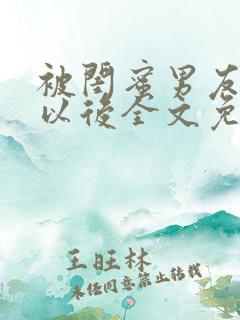 被閨蜜男友
以後全文免
王旺林
未经同意禁止转载